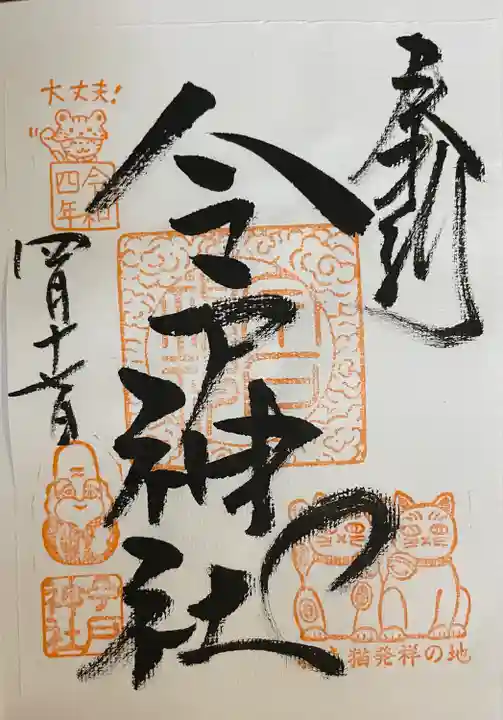 奉拝
今戸神社
猫発祥の地
大丈夫!
令和四年
四月十
今戸神社